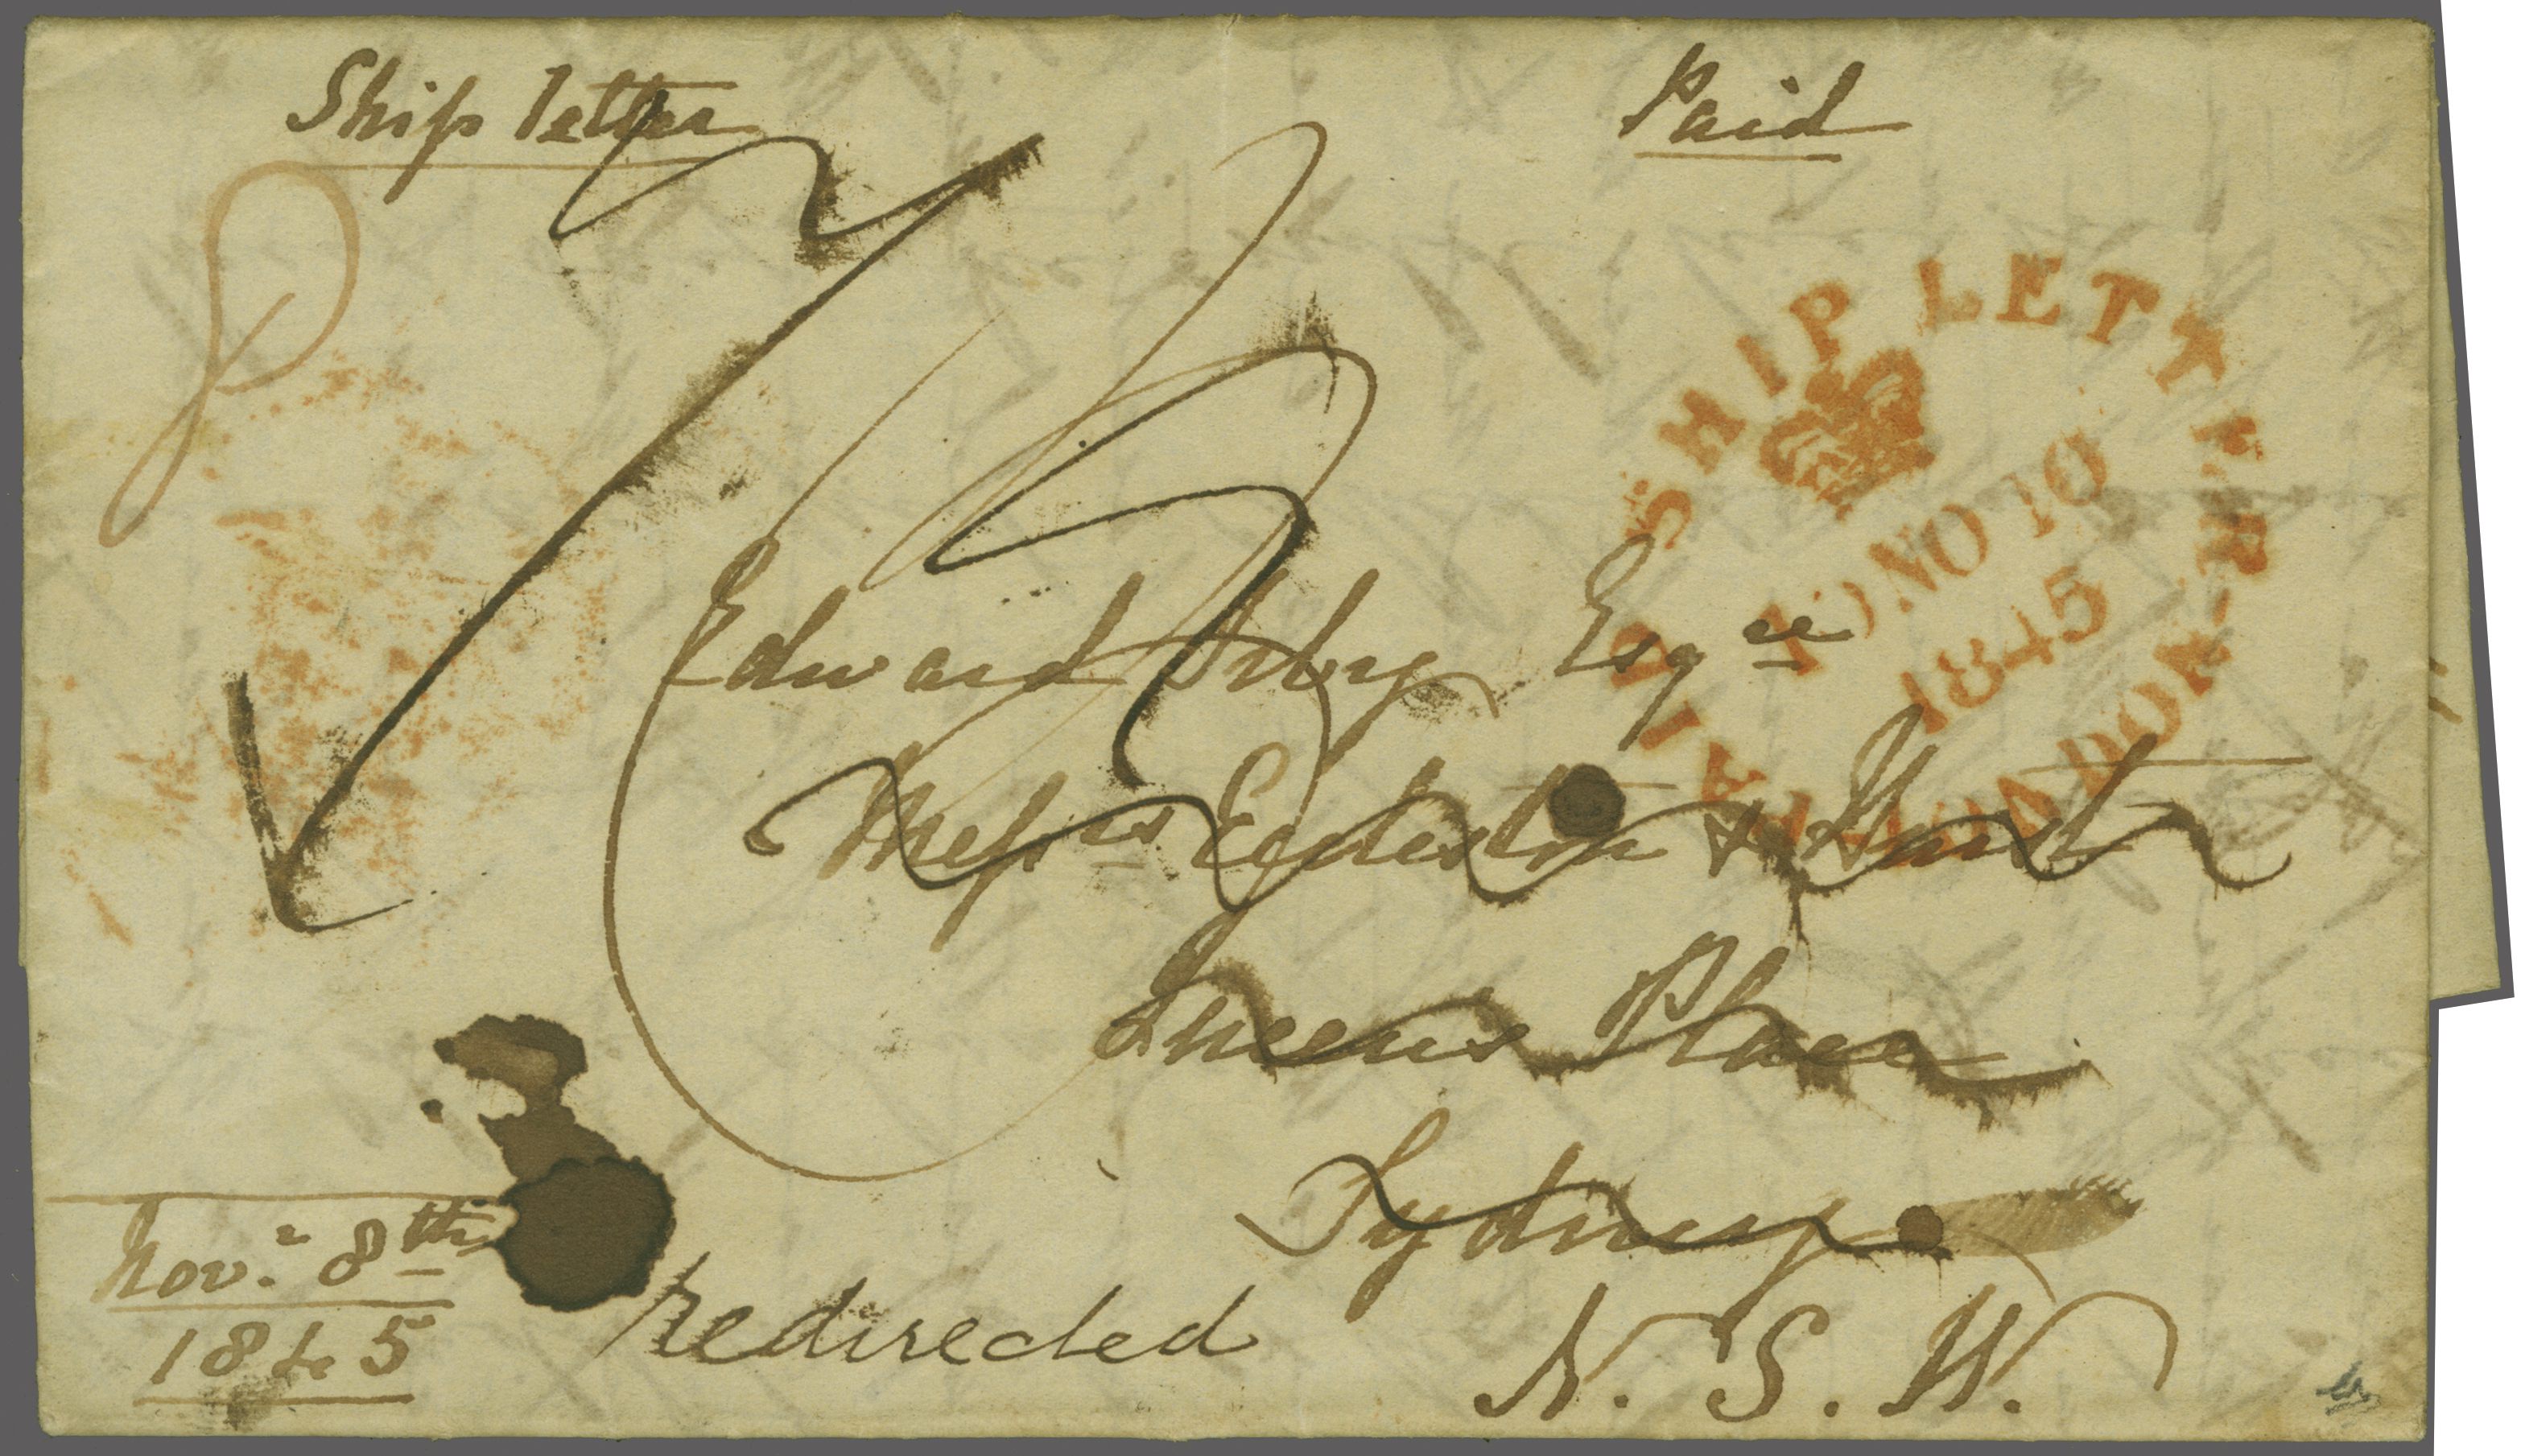 Ship letter
Paid
SHIP LETTER
10 NO 10
1845
PAID
LONDON
Edward Irby Esqre
Messrs Eccleston & Hirst
Queens Place
Sydney
N. S. W.
Novr 8th
1845
redirected